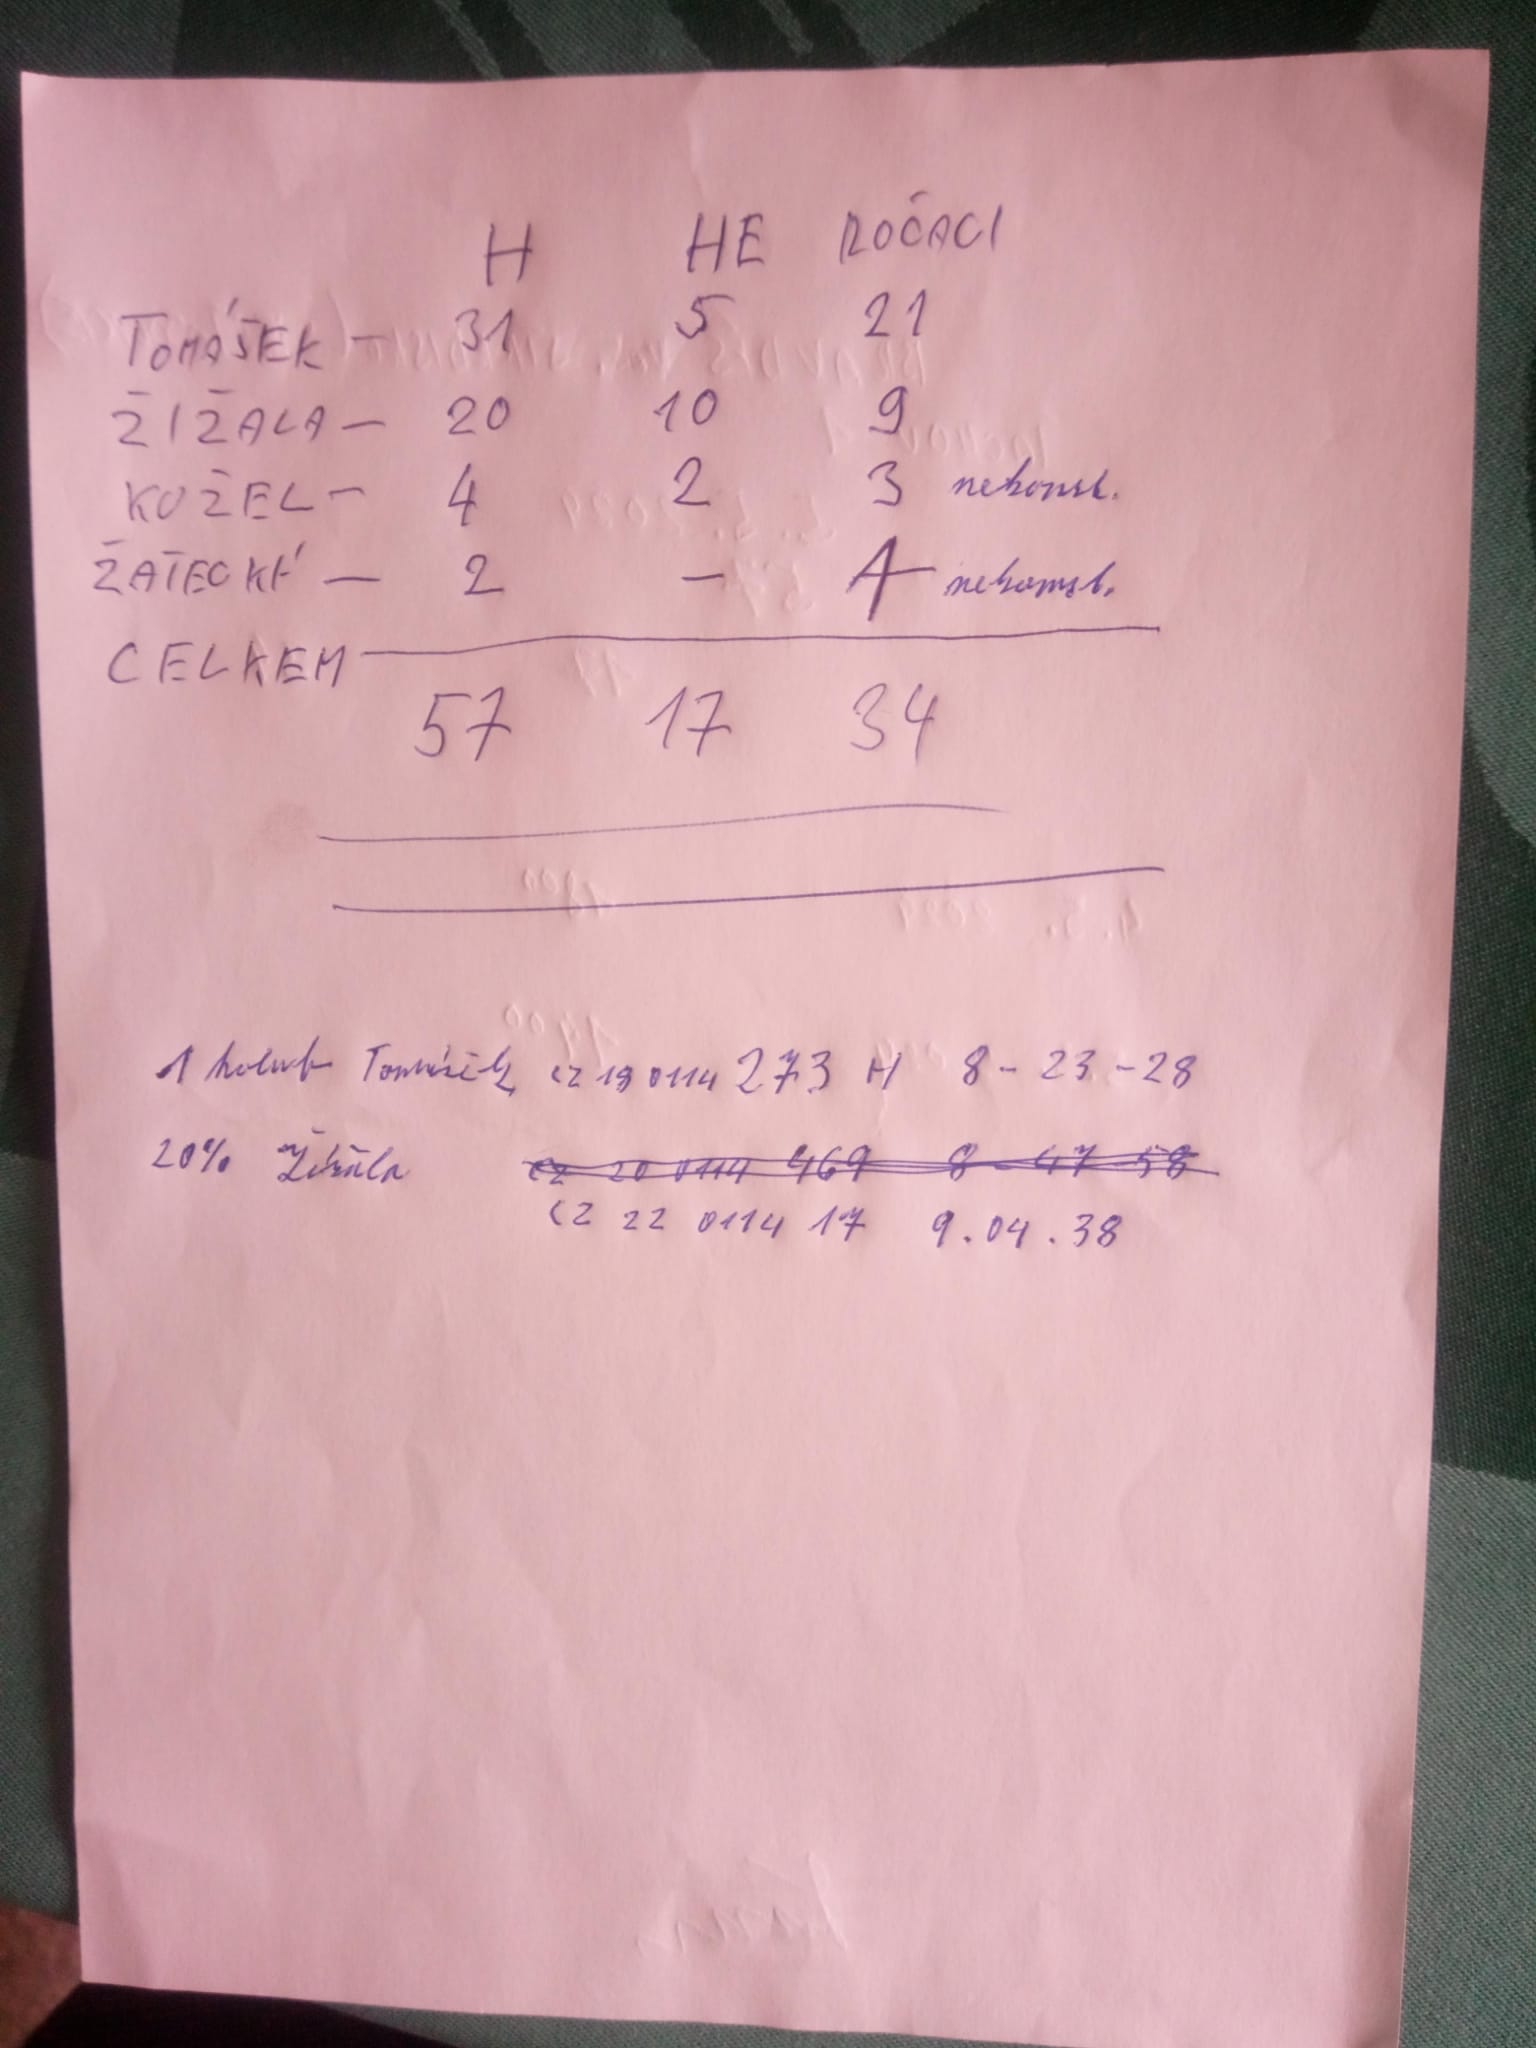 H HE ROČACI
TOMÁŠEK - 31 5 21
ŽIŽALA - 20 10 9
KOŽEL - 4 2 3 nekonst.
ŽATECKÝ - 2 - 1 nekonst.
CELKEM
57 17 34
1 holub Tomášek CZ 19 0114 273 H 8-23-28
20% Žížala CZ 20 0114 469 8-47-58
CZ 22 0114 17 9.04.38